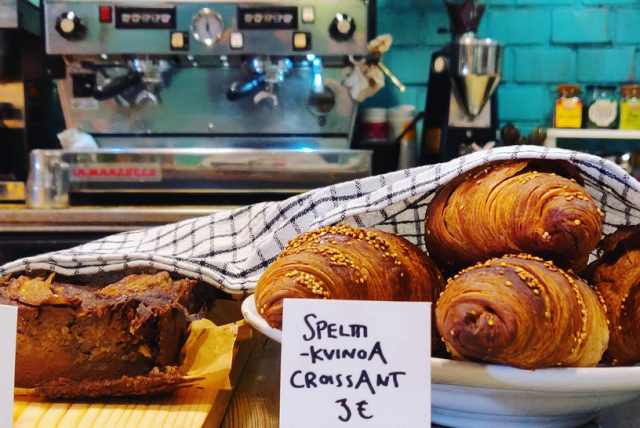 LA MARZOCCO
SPELTTI
-KVINOA
CROISSANT
3€